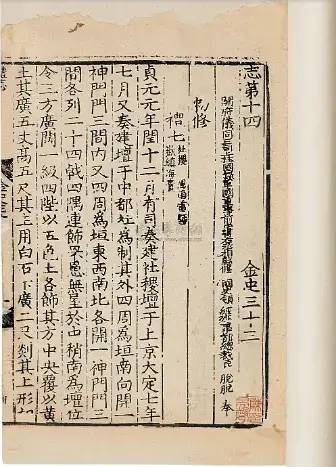 志第十四　金史三十三
開府儀同三司上柱國錄軍國重事前中書右丞相監修國史領經筵事都總裁臣脫脫奉
勑修
禮七 社稷 風雨雷師 嶽鎮海瀆
貞元元年閏十二月有司奏建社稷壇于上京大定七年
七月又奏建壇于中都社為制其外四周為垣南向開一
神門門三間内又四周為垣東西南北各開一神門門三
間各列二十四戟四隅連飾罘罳無屋於中稍南為壇位
令三方廣闊一級四陛以五色土各飾其方中央覆以黃
土其廣五丈高五尺其主用白石下廣二尺剡其上形如